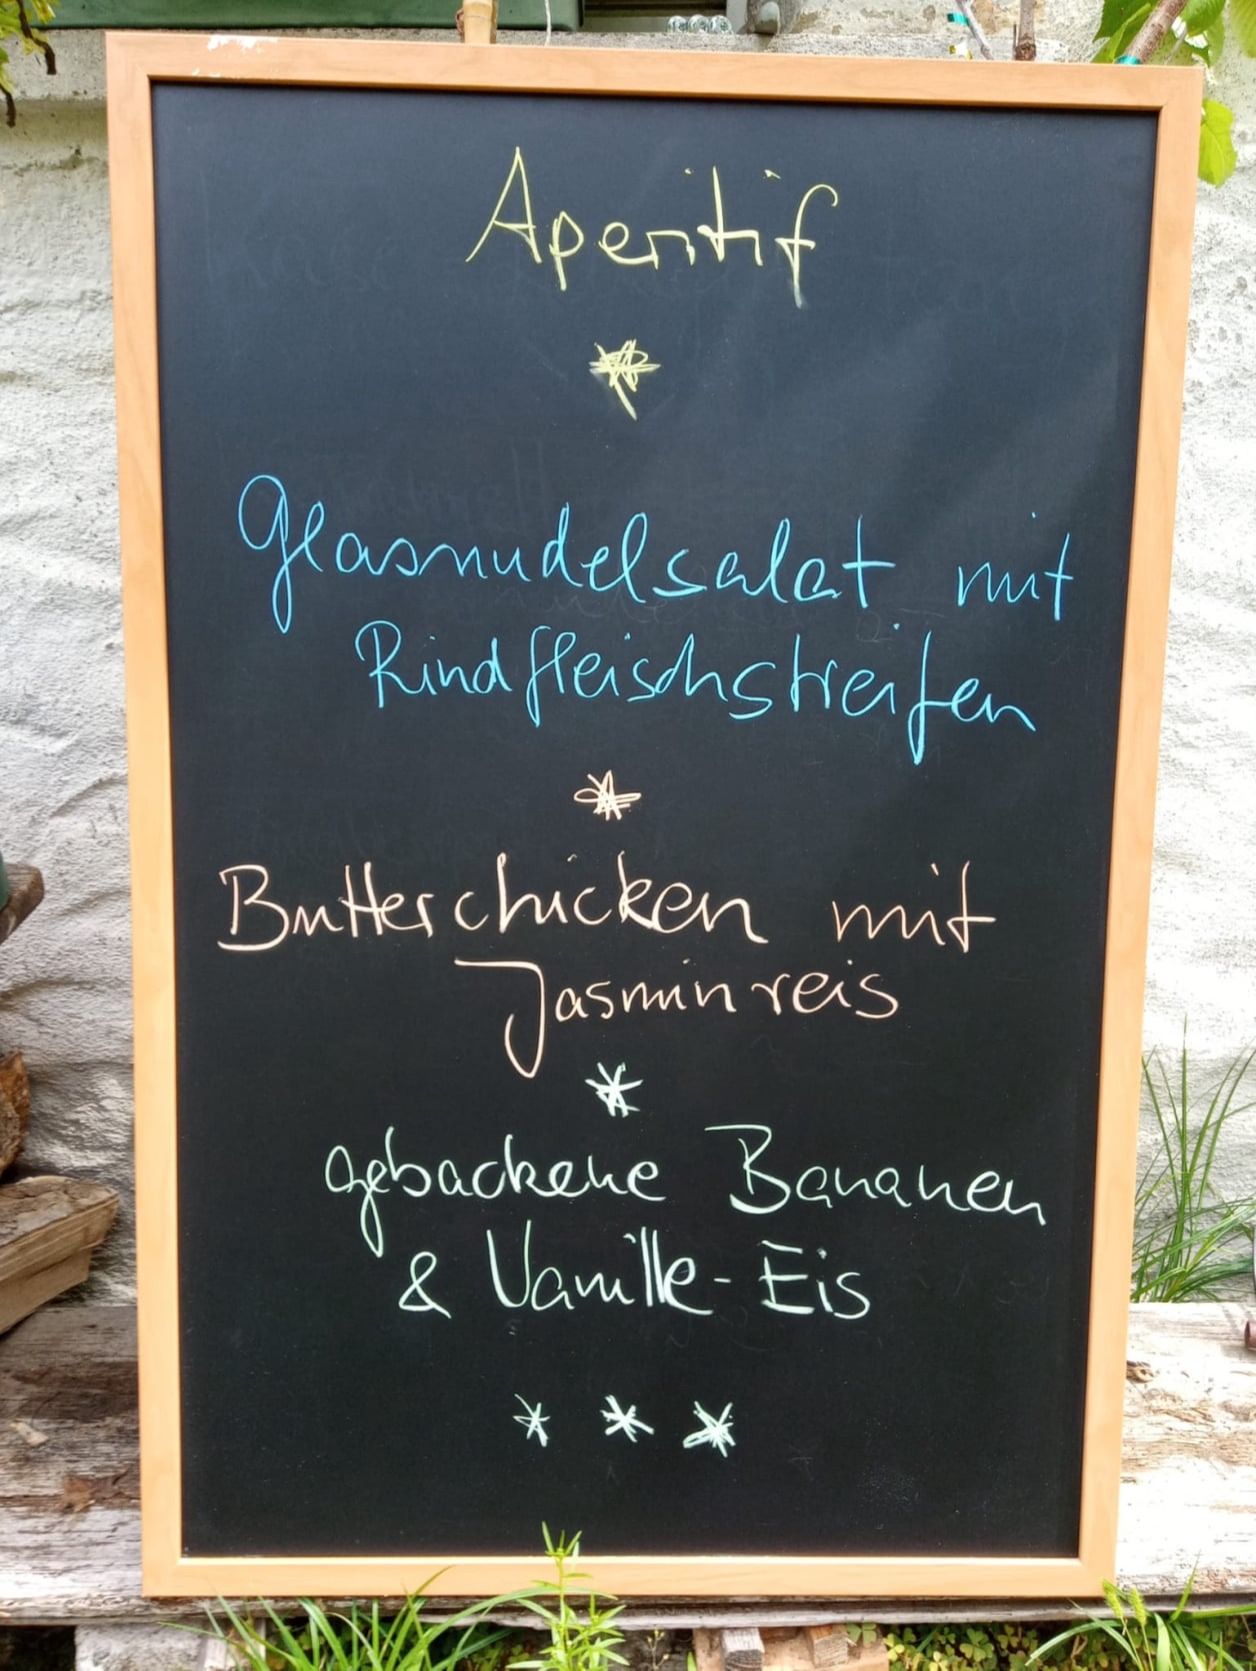 Aperitif
*
Glasnudelsalat mit
Rindfleischstreifen
*
Butterchicken mit
Jasminreis
*
gebackene Bananen
& Vanille-Eis
* * *